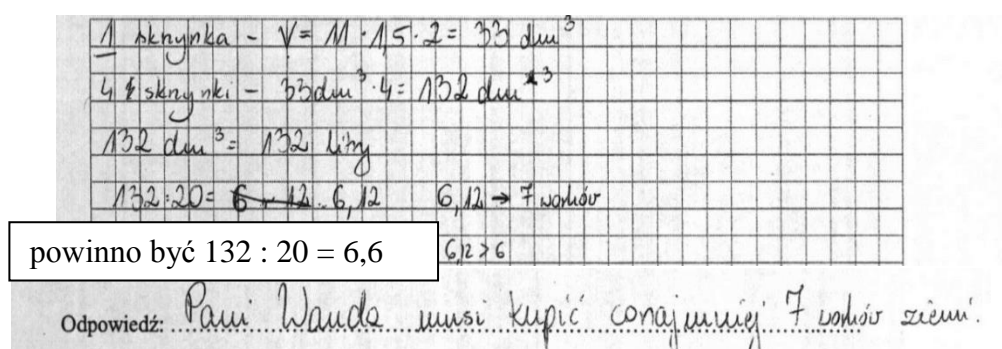 1 skrzynka - V = 11 · 1,5 · 2 = 33 dm³
4 skrzynki - 33dm³ · 4 = 132 dm³
132 dm³ = 132 litry
132:20 = 6 12 6,12 6,12 → 7 worków
powinno być 132 : 20 = 6,6 6,12 > 6
Odpowiedź: Pani Wanda musi kupić conajmniej 7 worków ziemi.